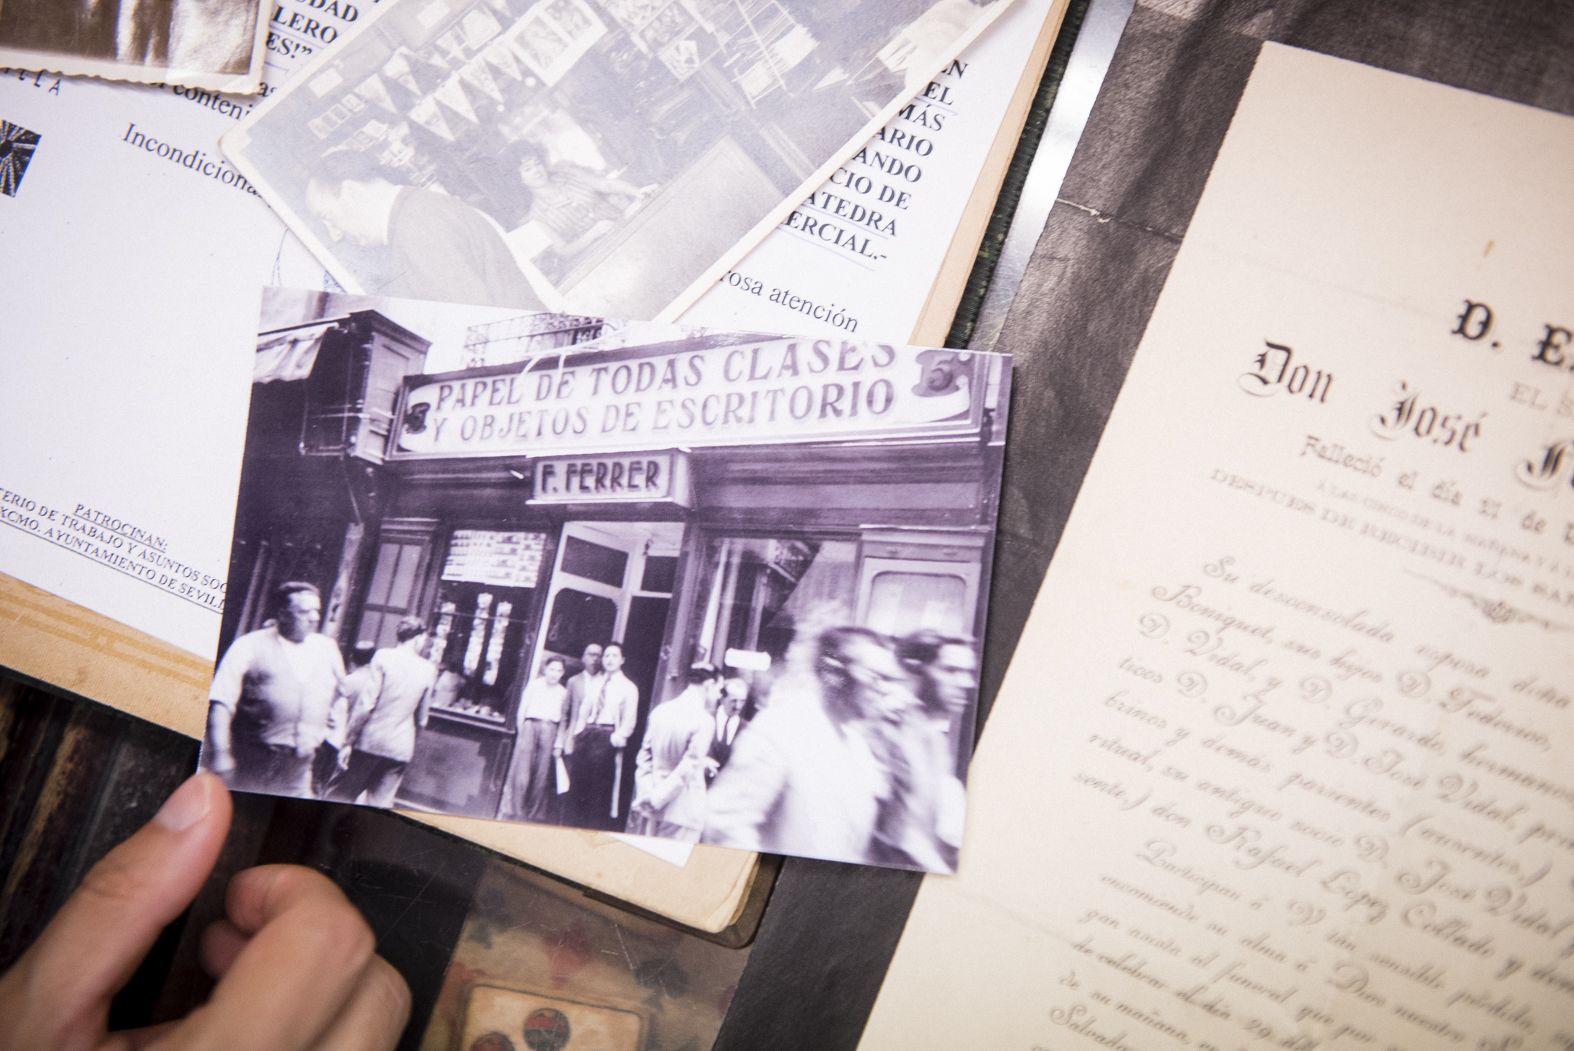 DAD
LERO
ES!"
conteni
Incondiciona
EN
EL
MÁS
ARIO
ANDO
CIO DE
ATEDRA
ERCIAL.-
rosa atención
PATROCINAN:
TERIO DE TRABAJO Y ASUNTOS SOC
EXCMO. AYUNTAMIENTO DE SEVILL
PAPEL DE TODAS CLASES
Y OBJETOS DE ESCRITORIO
F. FERRER
D. E.
EL S
Don José F
Falleció el día 27 de
DESPUES DE RECIBIR LOS SAN
Su desconsolada esposa doña
Boniquet, sus hijos D. Federico,
D. Vidal, y D. Gerardo, hermanos
ticos D. Juan y D. José Vidal, pri
brinos y demás parientes (ausentes,)
ritual, su antiguo socio D. José Vidal
sente,) don Rafael Lopez Collado y dem
Participan á VV. tan sensible pérdida,
encomiende su alma á Dios nuestro S
gan asista al funeral, que por
de celebrar el día 29 de
de su mañana, en
Salvador